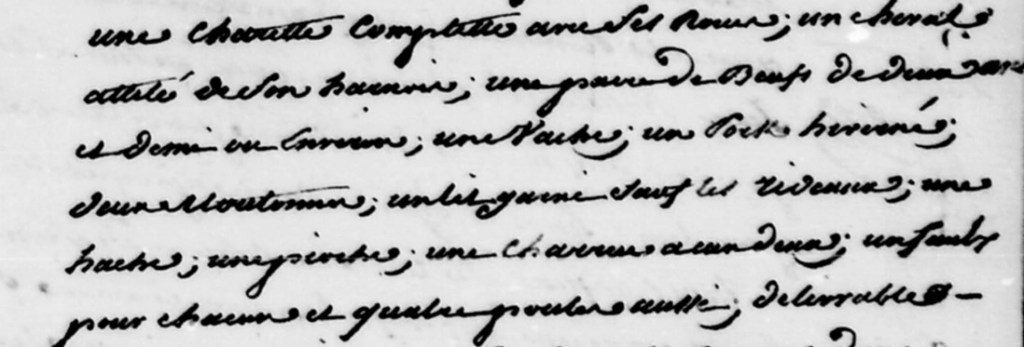 une charette complette avec ses Roues; un cheval
attelé de son harnois; une paire de Boeufs de deux ans
et demi ou Environ; une Vache; un Pock hiverné;
deux Moutonnes; un lit garni sauf les rideaux; une
hache; une pioche; une charrue a eux deux; un faulx
pour chacun et quatre poules aussi; delivrables -